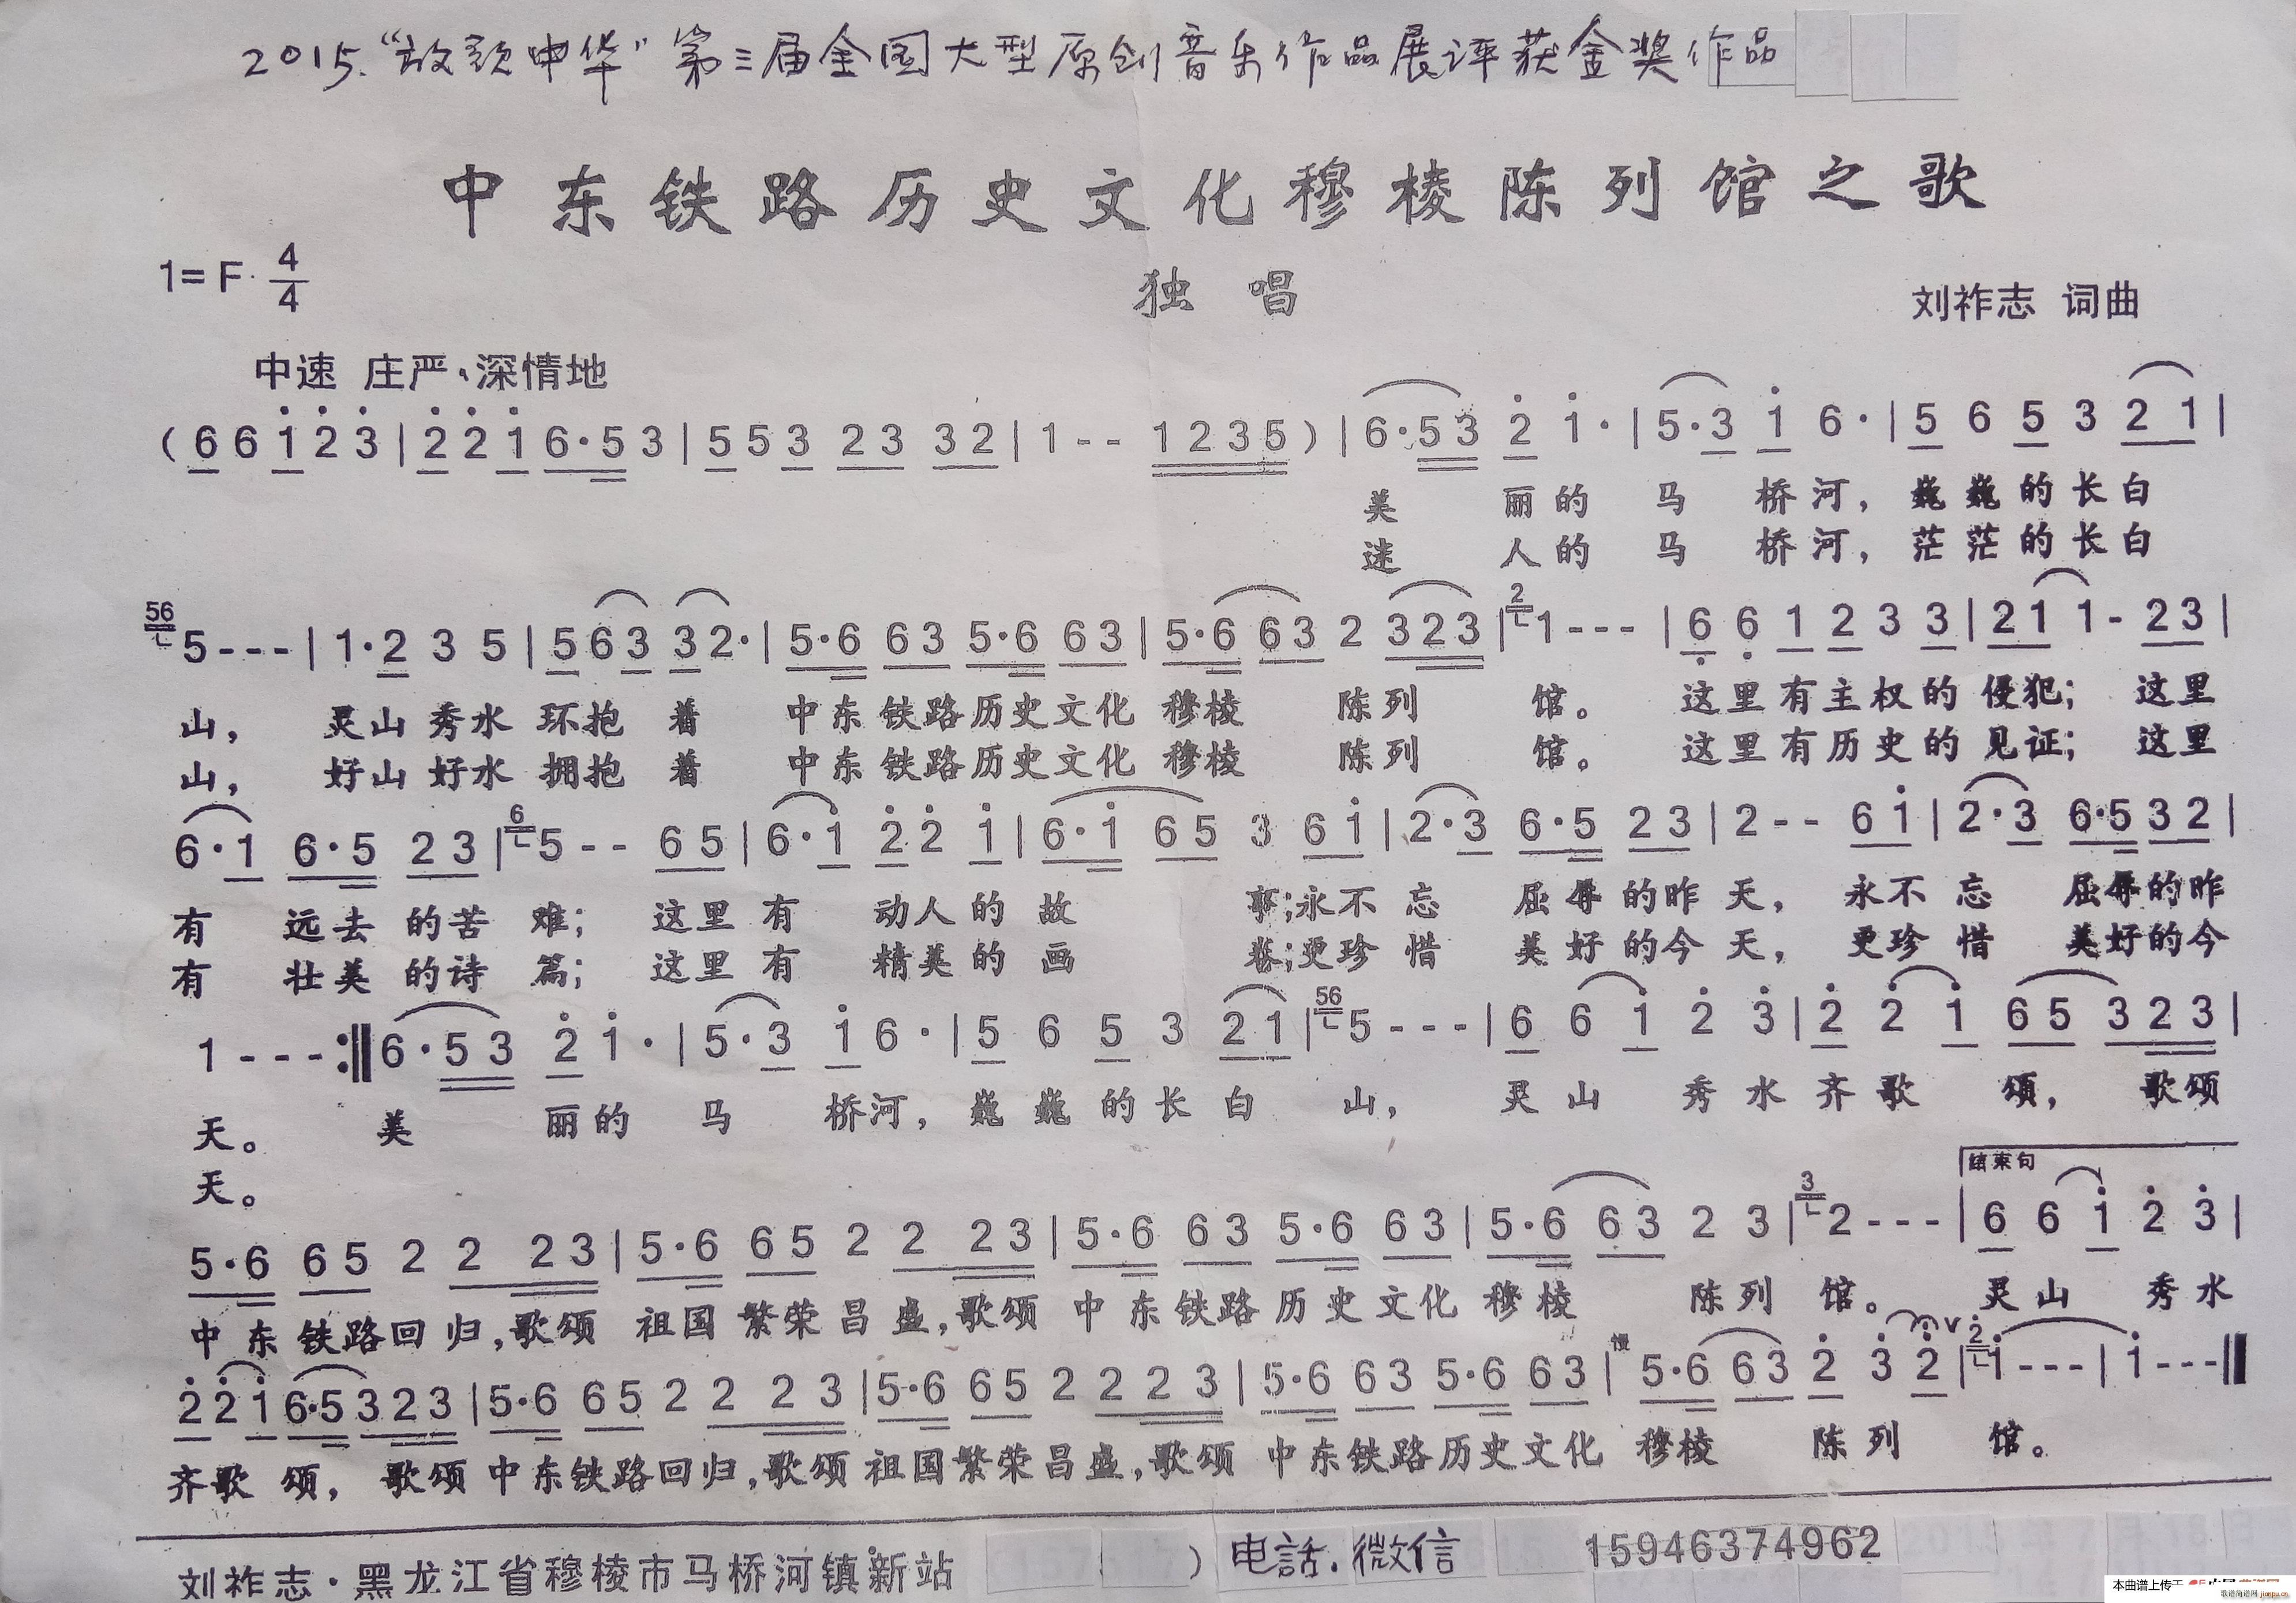 2015.“放歌中华”第三届全国大型原创音乐作品展评获金奖作品
中东铁路历史文化穆棱陈列馆之歌
1=F 4/4
独 唱
刘祚志 词曲
中速 庄严、深情地
(6 6 1̇ 2̇ 3̇ | 2̇ 2̇ 1̇ 6·5 3 | 5 5 3 2 3 3 2 | 1 - - 1 2 3 5 ) | 6·5 3 2̇ 1̇· | 5·3 1̇ 6· | 5 6 5 3 2 1 |
美 丽的 马 桥河, 巍巍的长白
迷 人的 马 桥河, 茫茫的长白
56 5 - - - | 1·2 3 5 | 5 6 3 3 2· | 5·6 6 3 5·6 6 3 | 5·6 6 3 2 3 2 3 | 2 1 - - - | 6̣ 6̣ 1 2 3 3 | 2 1 1 - 2 3 |
山, 灵山 秀水 环抱 着 中东铁路历史文化 穆棱 陈列 馆。 这里有主权的 侵犯; 这里
山, 好山 好水 拥抱 着 中东铁路历史文化 穆棱 陈列 馆。 这里有历史的 见证; 这里
6·1 6·5 2 3 | 6 5 - - 6 5 | 6·1̇ 2̇ 2̇ 1̇ | 6·1̇ 6 5 3 6 1̇ | 2·3 6·5 2 3 | 2 - - 6 1̇ | 2·3 6·5 3 2 |
有 远去 的苦 难; 这里 有 动人 的 故 事;永不 忘 屈辱 的昨 天, 永不 忘 屈辱的昨
有 壮美 的诗 篇; 这里 有 精美 的 画 卷;更珍 惜 美好 的今 天, 更珍 惜 美好的今
1 - - - :‖ 6·5 3 2̇ 1̇· | 5·3 1̇ 6· | 5 6 5 3 2 1 | 56 5 - - - | 6 6 1̇ 2̇ 3̇ | 2̇ 2̇ 1̇ 6 5 3 2 3 |
天。 美 丽的 马 桥河, 巍 巍 的 长 白 山, 灵 山 秀 水 齐 歌 颂, 歌颂
天。
结束句
5·6 6 5 2 2 2 3 | 5·6 6 5 2 2 2 3 | 5·6 6 3 5·6 6 3 | 5·6 6 3 2 3 | 3 2 - - - | 6 6 1̇ 2̇ 3̇ |
中 东 铁路回 归,歌颂 祖国 繁荣 昌 盛,歌颂 中 东 铁路 历 史 文化 穆 棱 陈列 馆。 灵山 秀水
慢
2̇ 2̇ 1̇ 6·5 3 2 3 | 5·6 6 5 2 2 2 3 | 5·6 6 5 2 2 2 3 | 5·6 6 3 5·6 6 3 | 5·6 6 3 2̇ 3̇ 2̇ V | 2̇ 1̇ - - - | 1̇ - - - ‖
齐歌 颂, 歌颂 中东铁路回归,歌颂 祖国繁荣昌盛,歌颂 中东铁路历史文化 穆棱 陈列 馆。
刘祚志·黑龙江省穆棱市马桥河镇新站 ) 电話.微信 15946374962
本曲谱上传于
歌谱简谱网 jianpu.cn